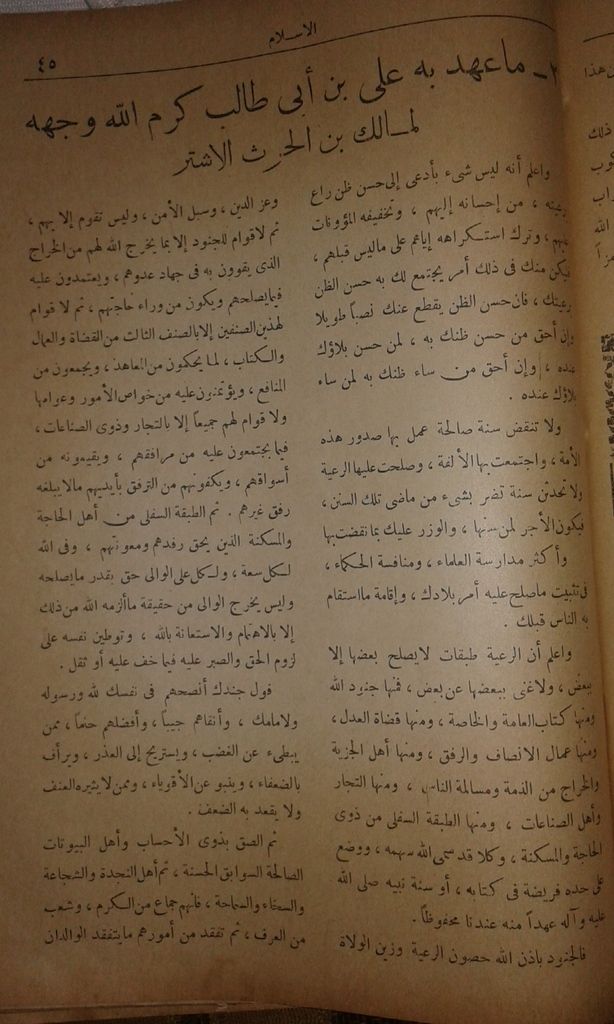 الاسلام
٤٥
ـ ما عهد به على بن أبى طالب كرم الله وجهه
لمـالك بن الحرث الاشتر
واعلم أنه ليس شىء بأدعى إلى حسن ظن راع
برعيته ، من إحسانه إليهم ، وتخفيفه المؤونات
عليهم ، وترك استكراهه إياهم على ما ليس قبلهم ،
فيكن منك فى ذلك أمر يجتمع لك به حسن الظن
برعيتك ، فان حسن الظن يقطع عنك نصباً طويلا
وإن أحق من حسن ظنك به ، لمن حسن بلاؤك
عنده ، وإن أحق من ساء ظنك به لمن ساء
بلاؤك عنده .
ولا تنقض سنة صالحة عمل بها صدور هذه
الأمة ، واجتمعت بها الألفة ، وصلحت عليها الرعية
ولا تحدثن سنة تضر بشىء من ماضى تلك السنن ،
فيكون الأجر لمن سنها ، والوزر عليك بما نقضت بها
وأكثر مدارسة العلماء ، ومنافسة الحكماء ،
فى تثبيت ما صلح عليه أمر بلادك ، وإقامة ما استقام
به الناس قبلك .
واعلم أن الرعية طبقات لا يصلح بعضها إلا
ببعض ، ولا غنى ببعضها عن بعض ، فمنها جنود الله
ومنها كتاب العامة والخاصة ، ومنها قضاة العدل ،
ومنها عمال الانصاف والرفق ، ومنها أهل الجزية
والخراج من الذمة ومسالمة الناس ، ومنها التجار
وأهل الصناعات ، ومنها الطبقة السفلى من ذوى
الحاجة والمسكنة ، وكلا قد سمى الله سهمه ، ووضع
على حده فريضة فى كتابه ، أو سنة نبيه صلى الله
عليه وآله عهداً منه عندنا محفوظاً .
فالجنود باذن الله حصون الرعية وزين الولاة
وعز الدين ، وسبل الأمن ، وليس تقوم إلا بهم ،
ثم لا قوام للجنود إلا بما يخرج الله لهم من الخراج
الذى يقوون به فى جهاد عدوهم ، ويعتمدون عليه
فيما يصلحهم ويكون من وراء حاجتهم ، ثم لا قوام
لهذين الصنفين إلا بالصنف الثالث من القضاة والعمال
والكتاب ، لما يحكمون من المعاهد ، ويجمعون من
المنافع ، ويؤتمنون عليه من خواص الأمور وعوامها
ولا قوام لهم جميعاً إلا بالتجار وذوى الصناعات ،
فيما يجتمعون عليه من مرافقهم ، ويقيمونه من
أسواقهم ، ويكفونهم من الترفق بأيديهم مالا يبلغه
رفق غيرهم . ثم الطبقة السفلى من أهل الحاجة
والمسكنة الذين يحق رفدهم ومعونتهم ، وفى الله
لكل سعة ، ولكل على الوالى حق بقدر ما يصلحه
وليس يخرج الوالى من حقيقة ما ألزمه الله من ذلك
إلا بالاهتمام والاستعانة بالله ، وتوطين نفسه على
لزوم الحق والصبر عليه فيما خف عليه أو ثقل .
فول جندك أنصحهم فى نفسك لله ورسوله
ولامامك ، وأنقاهم جيباً ، وأفضلهم حلماً ، ممن
يبطىء عن الغضب ، ويستريح إلى العذر ، ويرأف
بالضعفاء ، وينبو عن الأقوياء ، وممن لا يثيره العنف
ولا يقعد به الضعف .
ثم الصق بذوى الأحساب وأهل البيوتات
الصالحة السوابق الحسنة ، ثم أهل النجدة والشجاعة
والسخاء والسماحة ، فانهم جماع من الكرم ، وشعب
من العرف ، ثم تفقد من أمورهم ما يتفقد الوالدان
ن هذا
ذلك
كوب
راب
الله